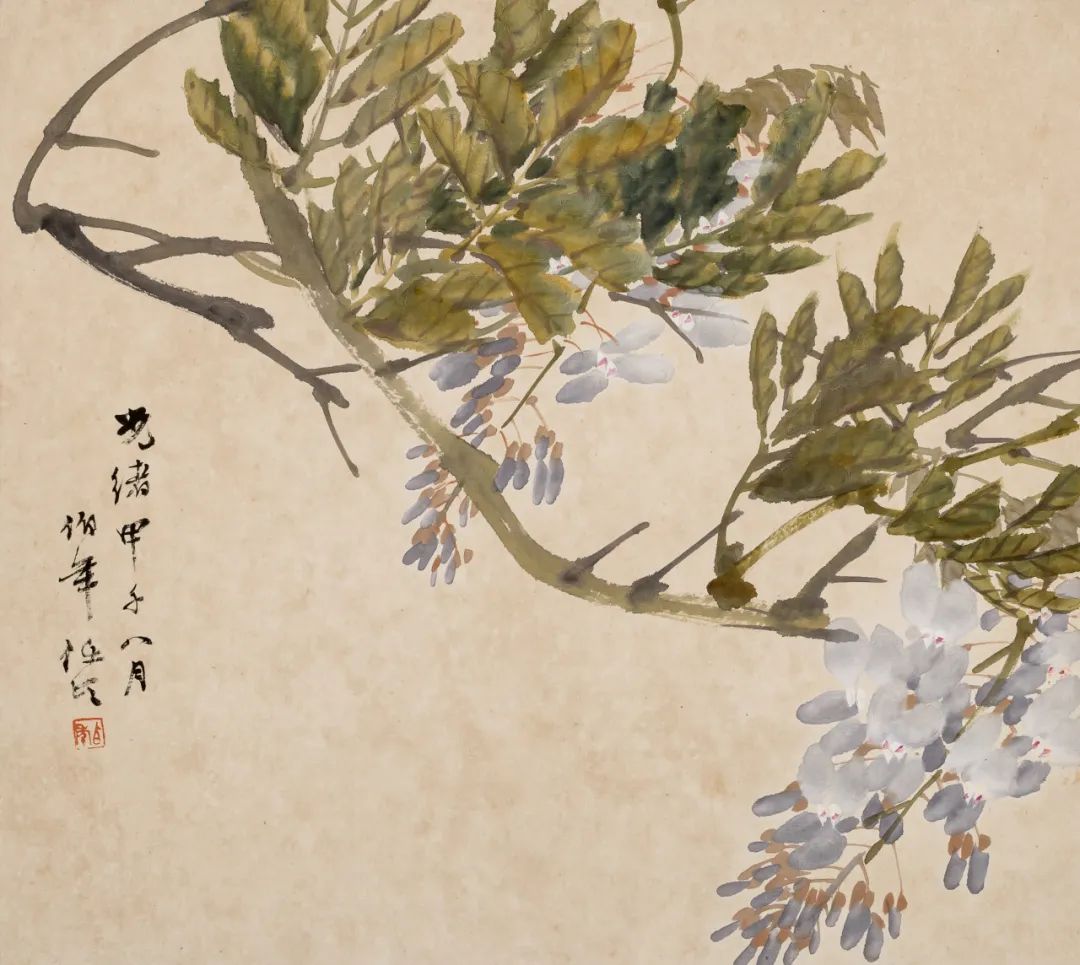 光緒甲午八月
伯年任頤